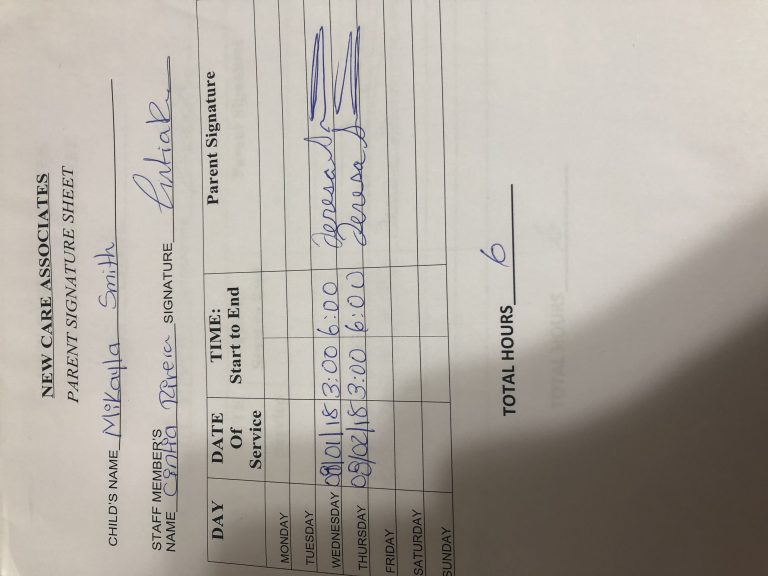 NEW CARE ASSOCIATES
PARENT SIGNATURE SHEET
CHILD'S NAME Mikayla Smith
STAFF MEMBER'S
NAME Cintia Rivera SIGNATURE
DAY DATE Of Service TIME: Start to End Parent Signature
MONDAY
TUESDAY
WEDNESDAY 08/01/18 3:00 6:00 Teresa S
THURSDAY 08/02/18 3:00 6:00 Teresa S
FRIDAY
SATURDAY
SUNDAY
TOTAL HOURS 6